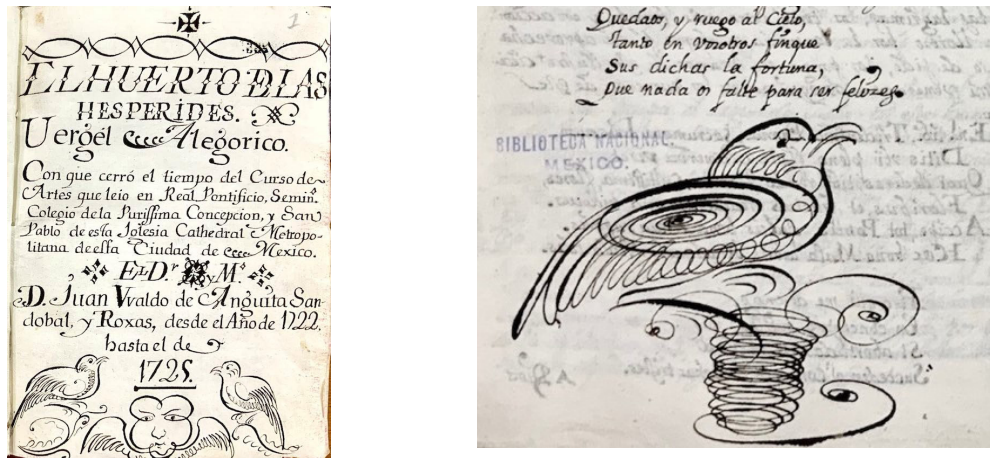 1
EL HUERTO D LAS
HESPERIDES.
Uergel Alegorico.
Con que cerró el tiempo del Curso de
Artes que leio en Real Pontificio, Semin.º
Colegio de la Purissima Concepcion, y San
Pablo de esta Iglesia Cathedral Metropo-
litana de essa Ciudad de Mexico.
El D.r y M.º
D. Juan Vvaldo de Anguita San-
dobal, y Roxas, desde el Año de 1722.
hasta el de
1725.
Quedaos, y ruego al Cielo,
tanto en vosotros finque
Sus dichas la fortuna,
Que nada os falte para ser felizes.
BIBLIOTECA NACIONAL
MEXICO.